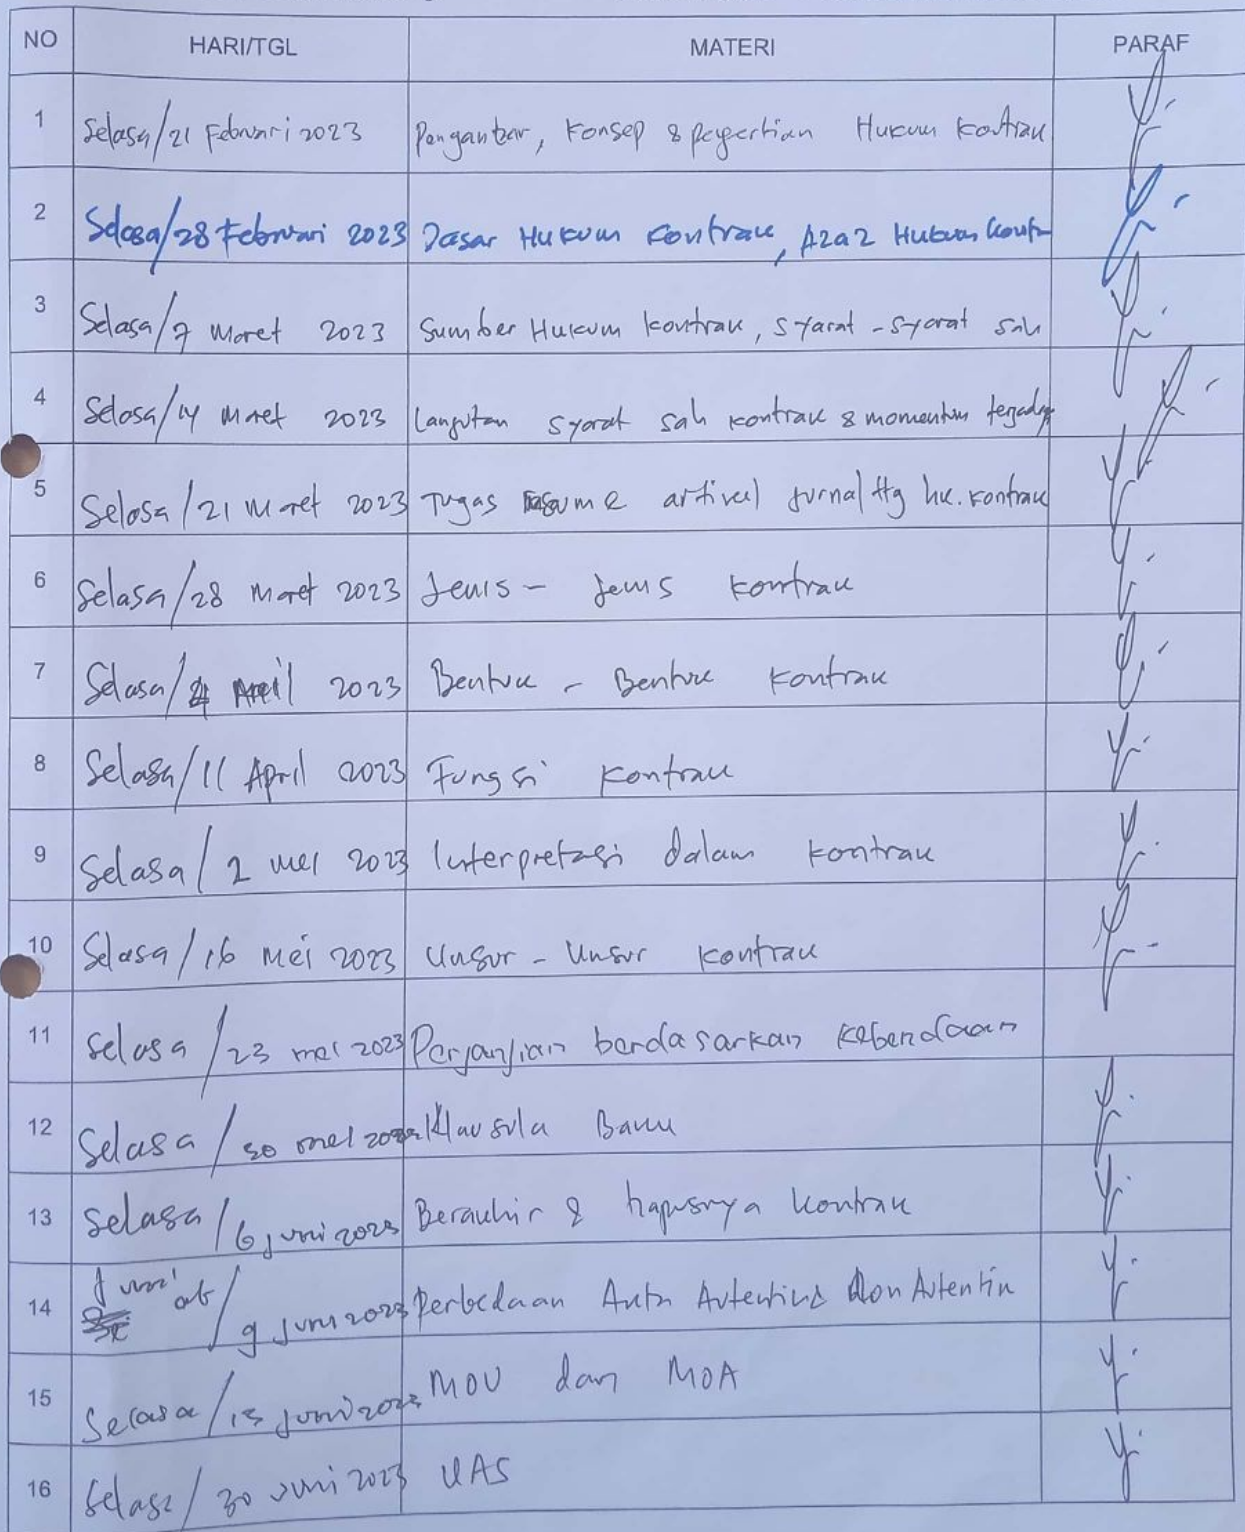 NO HARI/TGL MATERI PARAF
1 Selasa/21 Februari 2023 Pengantar, Konsep & pengertian Hukum Kontrak
2 Selasa/28 Februari 2023 Dasar Hukum Kontrak, Azaz Hukum Kontr
3 Selasa/7 Maret 2023 Sumber Hukum kontrak, syarat-syarat sah
4 Selasa/14 Maret 2023 Lanjutan syarat sah kontrak & momentum terjadi
5 Selasa/21 Maret 2023 Tugas resume artikel jurnal ttg hk. kontrak
6 Selasa/28 Maret 2023 Jenis - Jenis kontrak
7 Selasa/4 April 2023 Bentuk - Bentuk Kontrak
8 Selasa/11 April 2023 Fungsi Kontrak
9 Selasa/2 Mei 2023 Interpretasi dalam kontrak
10 Selasa/16 Mei 2023 Unsur - Unsur Kontrak
11 Selasa/23 mei 2023 Perjanjian berdasarkan kebendaan
12 Selasa/30 mei 2023 Klausula Baku
13 Selasa/6 juni 2023 Berakhir & hapusnya kontrak
14 Jum'at/9 Juni 2023 Perbedaan Akta Autentik & Non Autentik
15 Selasa/13 juni 2023 MOU dan MOA
16 Selasa/30 Juni 2023 UAS